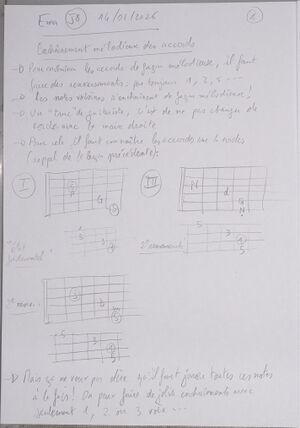 Ema 58 14/01/2026 1
Enchaînement mélodieux des accords
→ Pour enchaîner les accords de façon mélodieuse, il faut
faire des renversements. Pas toujours 1, 2, 5 ...
→ Les notes voisines s'enchaînent de façon mélodieuse !
→ Un "truc" de guitariste, c'est de ne pas changer de
corde avec la main droite
→ Pour cela il faut connaître les accords sur 4 cordes
(rappel de la leçon précédente).
I III
N
G d
G
N
5
1 3
3 1
5 5
"état
fondamental"
2e renversement
3 b
5
3
1
5
→ Mais ça ne veut pas dire qu'il faut jouer toutes ces notes
à la fois ! On peut faire de jolis enchaînements avec
seulement 1, 2 ou 3 voix ...